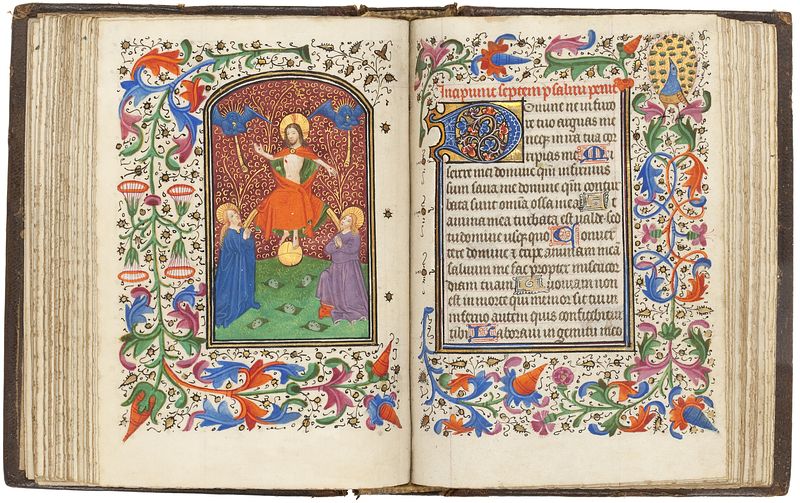 Incipiunt septem psalmi penit
Domine ne in furo
re tuo arguas me
neq in ira tua cor
ripias me Mi
serere mei domine qm̄ infirmus
sum sana me domine qm̄ contur
bata sunt om̄ia ossa mea Et
anima mea turbata est valde sed
tu domine usq quo Conuer
tere domine et eripe animam meā
saluum me fac propter misericor
diam tuam Quoniam non
est in morte qui memor sit tui in
inferno autem quis confitebitur
tibi Laboraui in gemitu meo